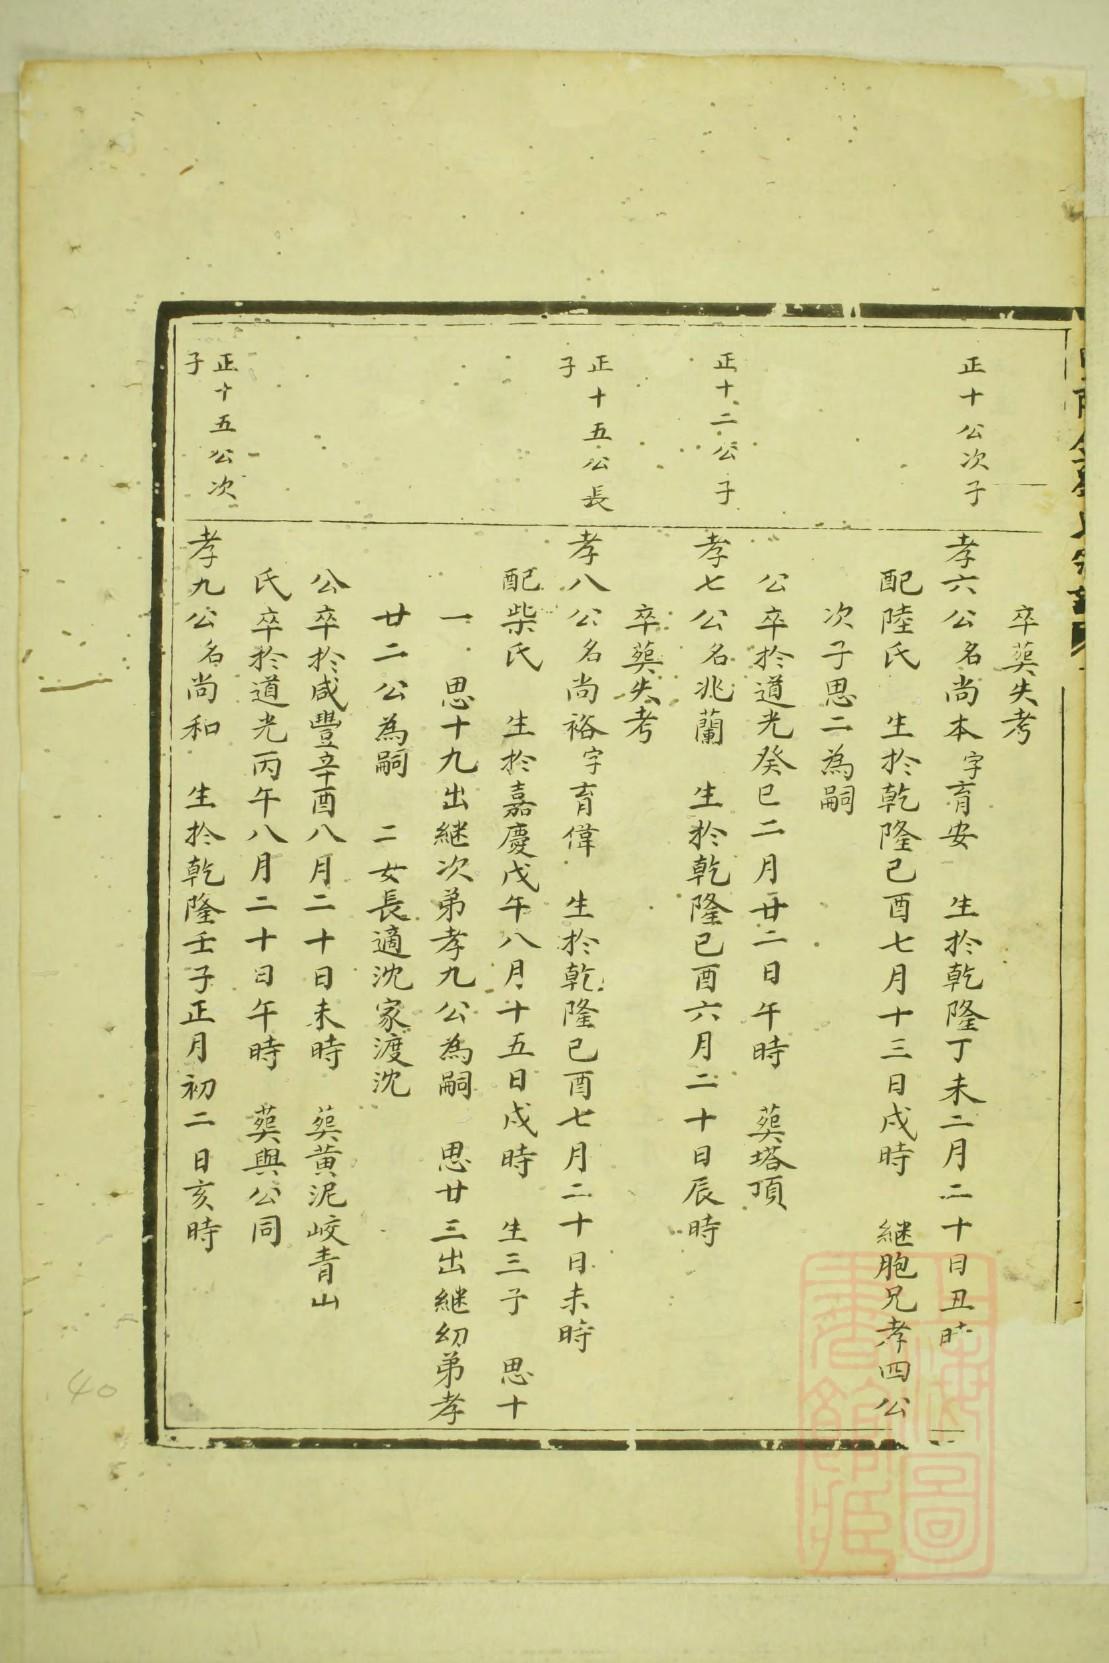 卒葬失考
正十公次子
孝六公名尚本字育安　生於乾隆丁未二月二十日丑時
配陸氏　生於乾隆己酉七月十三日戌時　継胞兄孝四公
次子思二為嗣
公卒於道光癸巳二月廿二日午時　葬塔頂
正十二公子
孝七公名兆蘭　生於乾隆己酉六月二十日辰時
卒葬失考
正十五公長
子
孝八公名尚裕字育偉　生於乾隆己酉七月二十日未時
配柴氏　生於嘉慶戊午八月十五日戌時　生三子　思十
一　思十九出継次弟孝九公為嗣　思廿三出継幼弟孝
廿二公為嗣　二女長適沈家渡沈
公卒於咸豐辛酉八月二十日未時　葬黃泥峧青山
氏卒於道光丙午八月二十日午時　葬與公同
正十五公次
子
孝九公名尚和　生於乾隆壬子正月初二日亥時
40
上海圖
書館藏